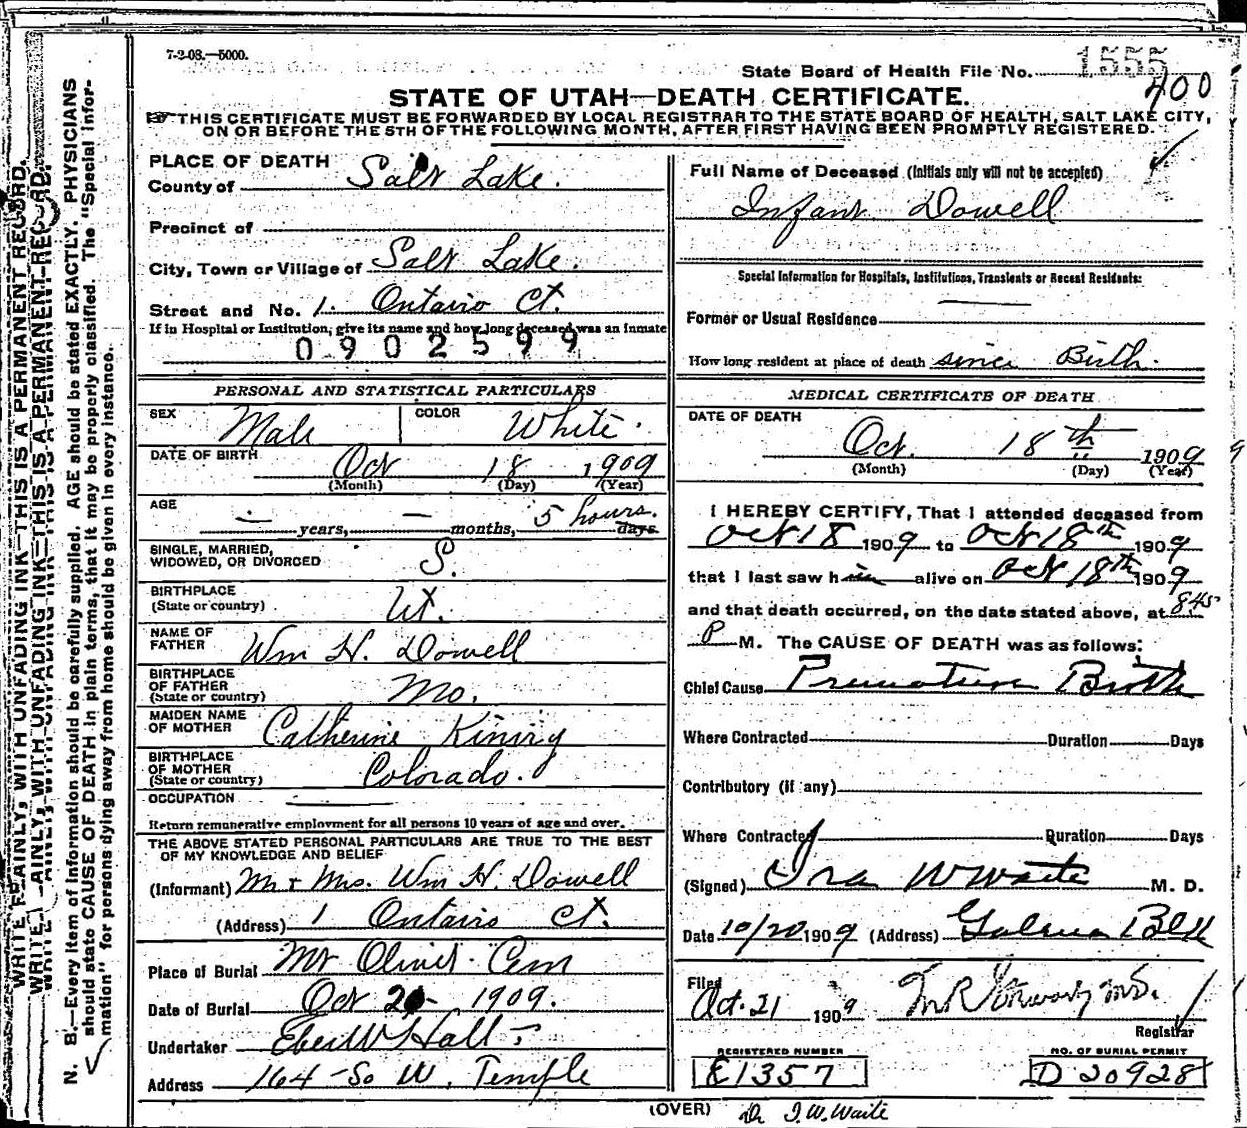 7-2-08.—5000.
State Board of Health File No. 1555
400
STATE OF UTAH—DEATH CERTIFICATE.
THIS CERTIFICATE MUST BE FORWARDED BY LOCAL REGISTRAR TO THE STATE BOARD OF HEALTH, SALT LAKE CITY,
ON OR BEFORE THE 5TH OF THE FOLLOWING MONTH, AFTER FIRST HAVING BEEN PROMPTLY REGISTERED.
PLACE OF DEATH
County of Salt Lake.
Precinct of
City, Town or Village of Salt Lake.
Street and No. 1. Ontario Ct.
If in Hospital or Institution, give its name and how long deceased was an inmate
0902599
PERSONAL AND STATISTICAL PARTICULARS
SEX Male COLOR White.
DATE OF BIRTH Oct 18 1909
(Month) (Day) (Year)
AGE — years, — months, 5 hours. days
SINGLE, MARRIED,
WIDOWED, OR DIVORCED S.
BIRTHPLACE
(State or country) Ut.
NAME OF
FATHER Wm H. Dowell
BIRTHPLACE
OF FATHER
(State or country) Mo.
MAIDEN NAME
OF MOTHER Catherine Kiniry
BIRTHPLACE
OF MOTHER
(State or country) Colorado.
OCCUPATION
Return remunerative employment for all persons 10 years of age and over.
THE ABOVE STATED PERSONAL PARTICULARS ARE TRUE TO THE BEST
OF MY KNOWLEDGE AND BELIEF
(Informant) Mr + Mrs. Wm H. Dowell
(Address) 1 Ontario Ct.
Place of Burial Mt Olivet Cem
Date of Burial Oct 20 1909.
Undertaker Eber W Hall
Address 164 So W. Temple
Full Name of Deceased (Initials only will not be accepted)
Infant Dowell
Special Information for Hospitals, Institutions, Transients or Recent Residents:
Former or Usual Residence
How long resident at place of death since Birth.
MEDICAL CERTIFICATE OF DEATH
DATE OF DEATH
Oct. 18th 1909 9
(Month) (Day) (Year)
I HEREBY CERTIFY, That I attended deceased from
Oct 18 1909 to Oct 18th 1909
that I last saw him alive on Oct 18th 1909
and that death occurred, on the date stated above, at 845
P M. The CAUSE OF DEATH was as follows:
Chief Cause Premature Birth
Where Contracted Duration Days
Contributory (if any)
Where Contracted Duration Days
(Signed) Ira W Waite M. D.
Date 10/20 1909 (Address)
Filed
Oct. 21 1909
Registrar
REGISTERED NUMBER
E1357
NO. OF BURIAL PERMIT
D 20928
(OVER) Dr I.W. Waite
WRITE PLAINLY, WITH UNFADING INK—THIS IS A PERMANENT RECORD.
WRITE PLAINLY, WITH UNFADING INK—THIS IS A PERMANENT RECORD.
N. B.—Every item of information should be carefully supplied. AGE should be stated EXACTLY. PHYSICIANS
should state CAUSE OF DEATH in plain terms, that it may be properly classified. The "Special Infor-
mation" for persons dying away from home should be given in every instance.